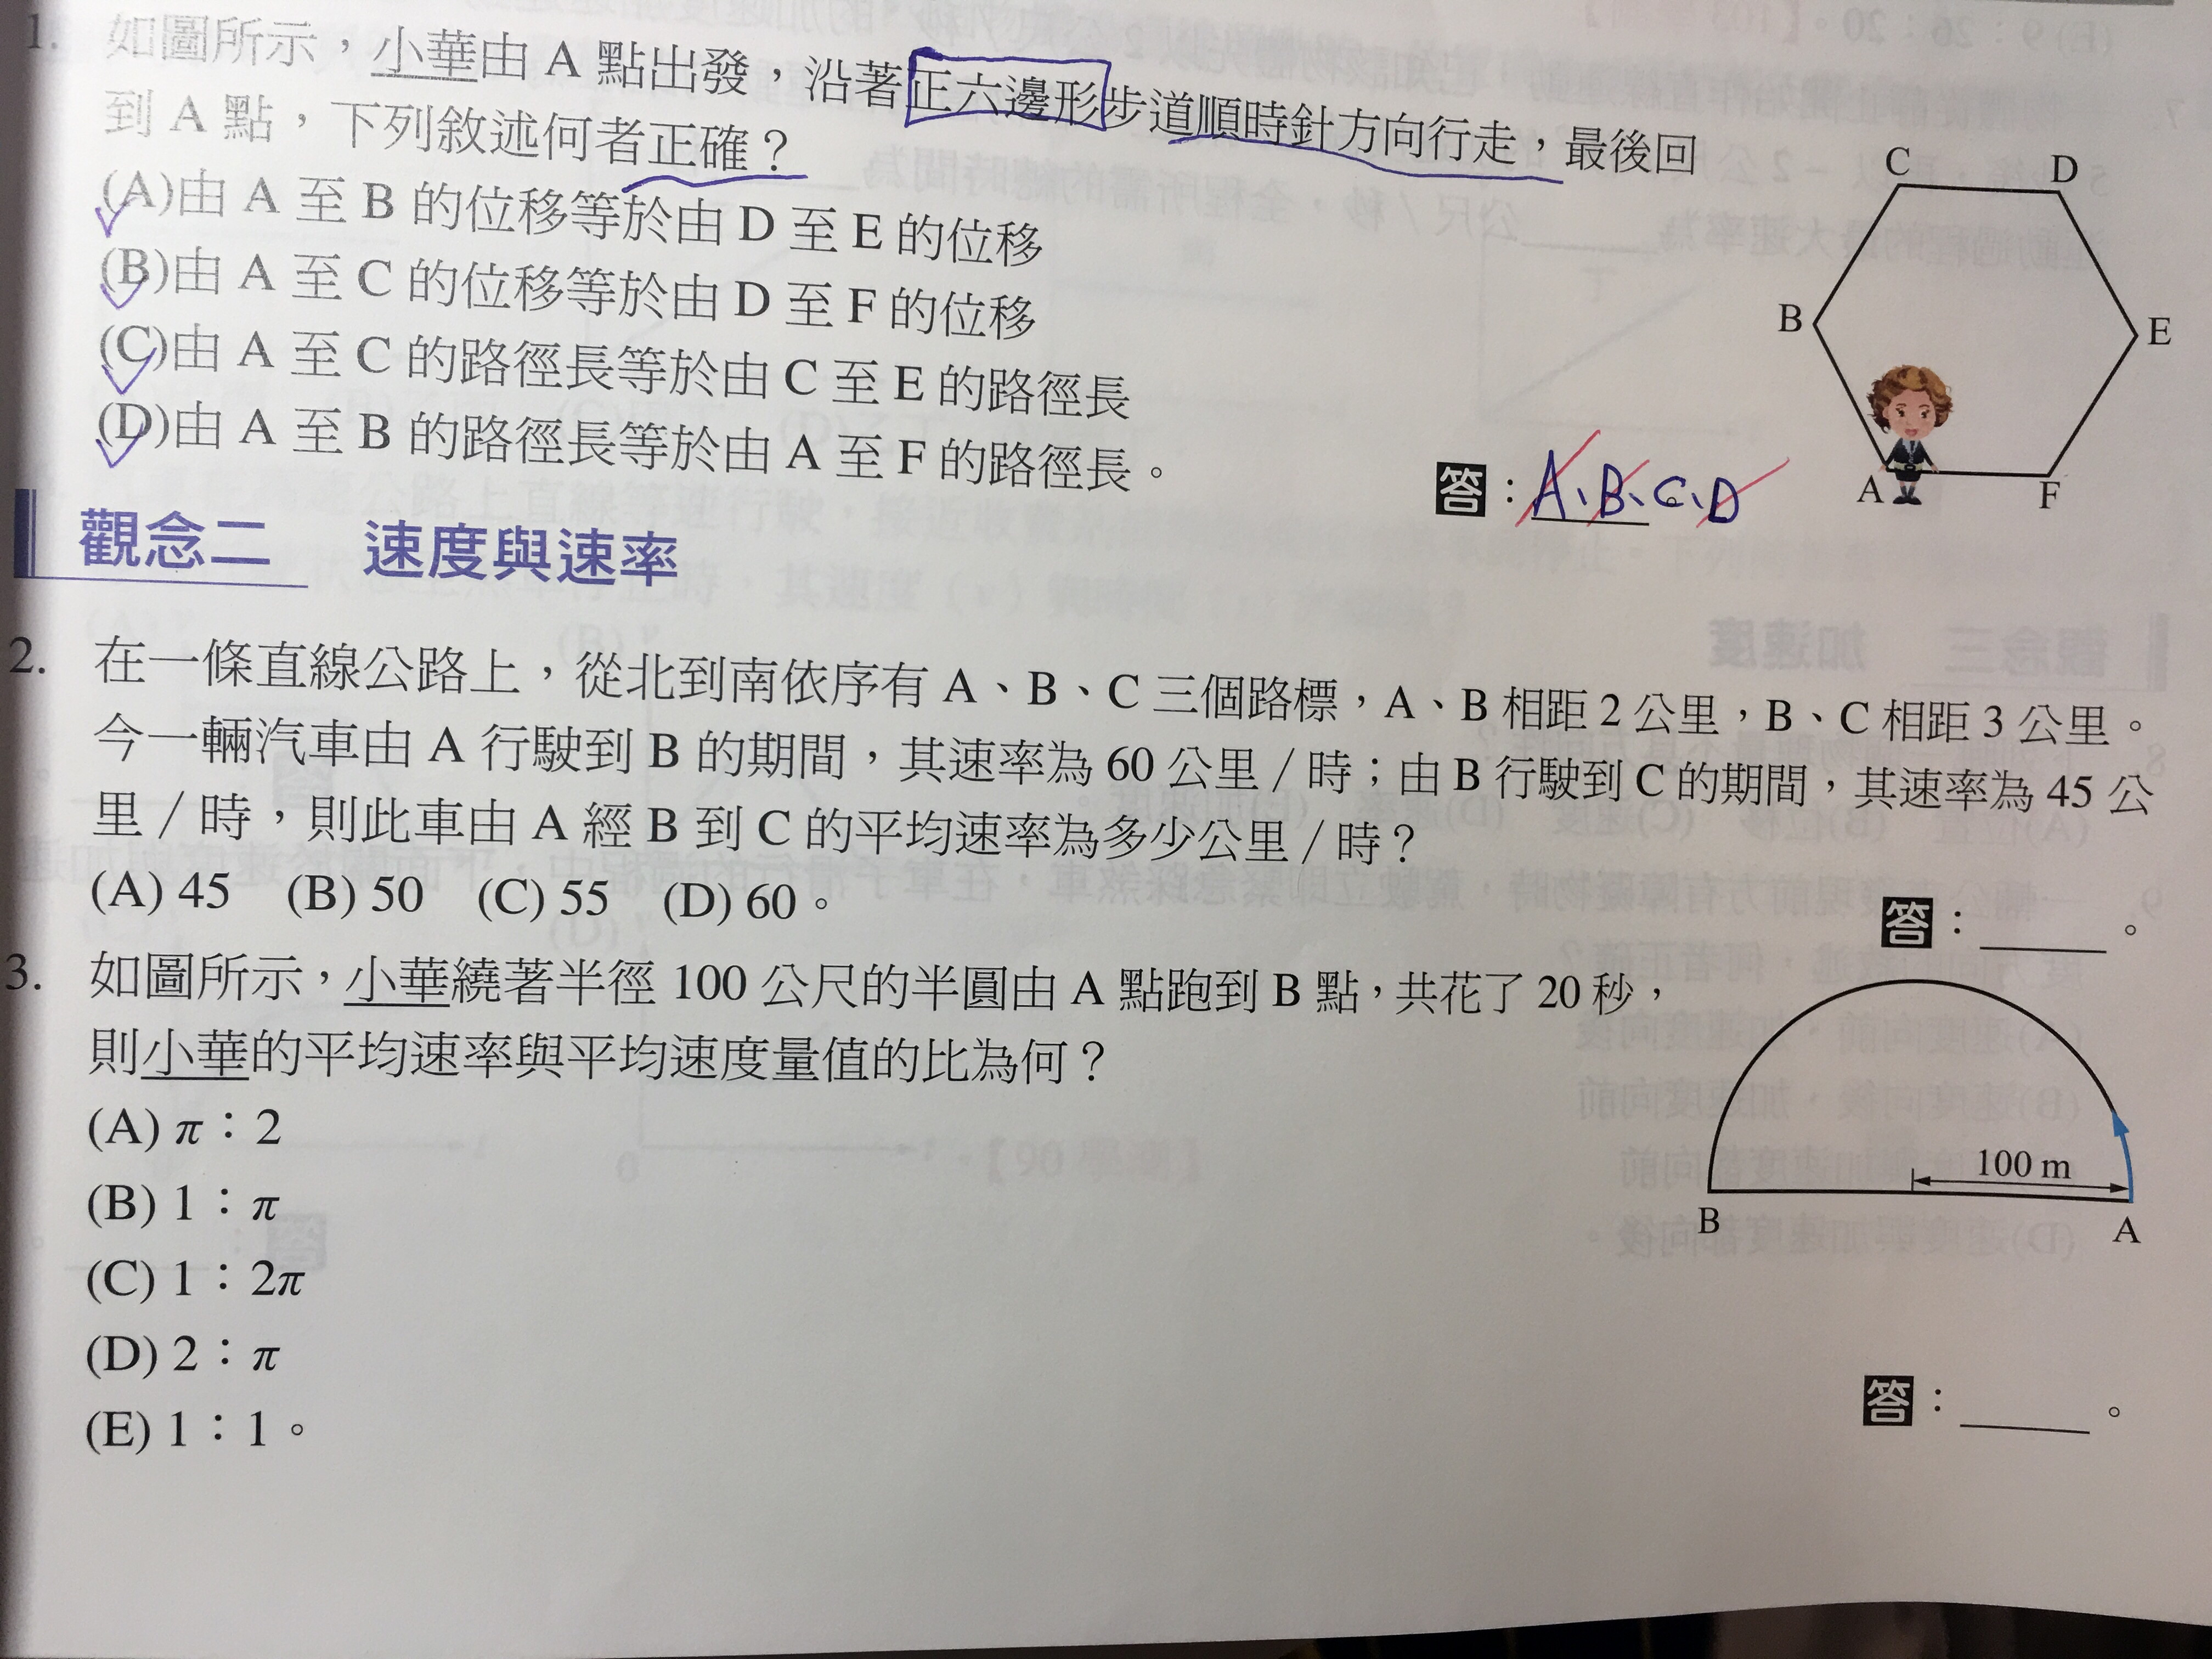 1. 如圖所示，小華由 A 點出發，沿著正六邊形步道順時針方向行走，最後回
到 A 點，下列敘述何者正確？
(A)由 A 至 B 的位移等於由 D 至 E 的位移
(B)由 A 至 C 的位移等於由 D 至 F 的位移
(C)由 A 至 C 的路徑長等於由 C 至 E 的路徑長
(D)由 A 至 B 的路徑長等於由 A 至 F 的路徑長。
答：A、B、C、D
C
D
B
E
A
F
觀念二 速度與速率
2. 在一條直線公路上，從北到南依序有 A、B、C 三個路標，A、B 相距 2 公里，B、C 相距 3 公里。
今一輛汽車由 A 行駛到 B 的期間，其速率為 60 公里 / 時；由 B 行駛到 C 的期間，其速率為 45 公
里 / 時，則此車由 A 經 B 到 C 的平均速率為多少公里 / 時？
(A) 45 (B) 50 (C) 55 (D) 60。
答：____。
3. 如圖所示，小華繞著半徑 100 公尺的半圓由 A 點跑到 B 點，共花了 20 秒，
則小華的平均速率與平均速度量值的比為何？
(A) π：2
(B) 1：π
(C) 1：2π
(D) 2：π
(E) 1：1。
100 m
B
A
答：____。